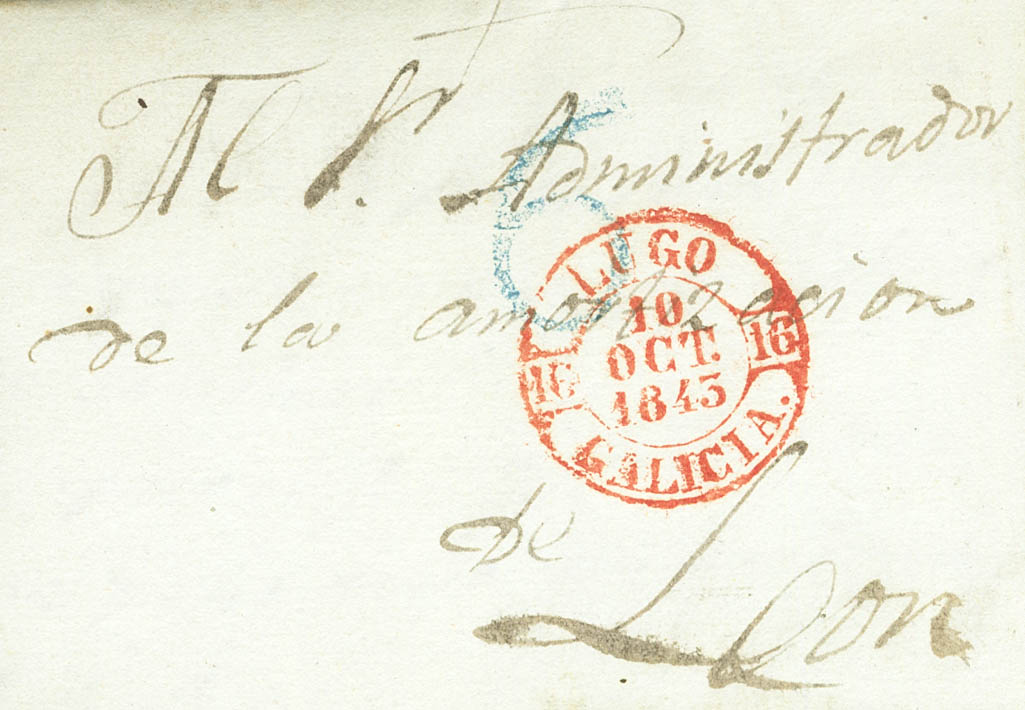 Al Sr. Administrador
6
de la amortizacion
LUGO
10
OCT.
1843
16 16
GALICIA.
de
Leon